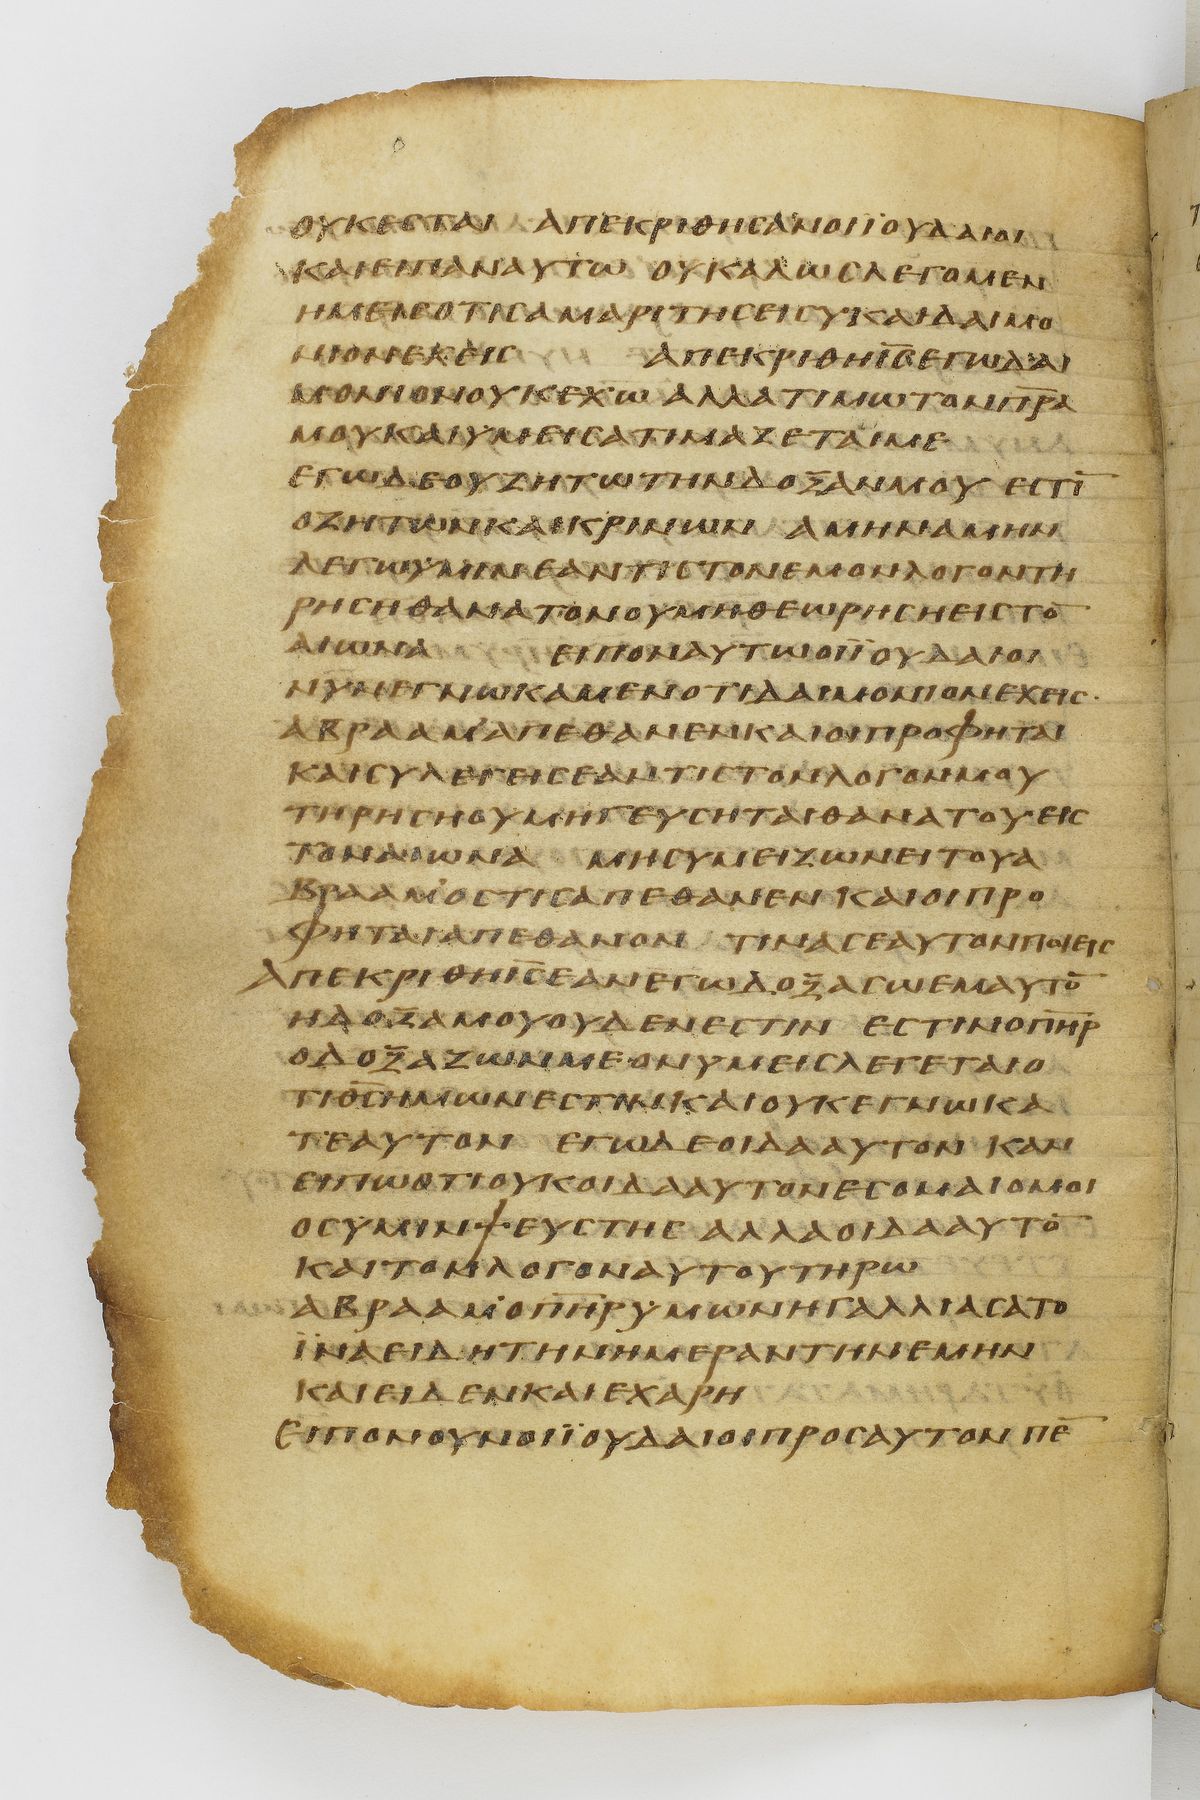 ουκεσται απεκριθησανοιϊουδαιοι
καιειπαναυτω ουκαλωσλεγομεν
ημεισοτισαμαριτησεισυκαιδαιμο
νιονεχεισ απεκριθηι̅σ̅εγωδαι
μονιονουκεχω αλλατιμωτονπ̅ρ̅α
μουκαιυμεισατιμαζεταιμε
εγωδεουζητωτηνδοξανμου εστι̅
οζητωνκαικρινων αμηναμην
λεγωυμινεαντιστονεμονλογοντη
ρησηθανατονουμηθεωρησηειστο̅
αιωνα ειποναυτωοιϊουδαιοι
νυνεγνωκαμενοτιδαιμονιονεχεισ·
αβρααμ'απεθανενκαιοιπροφηται
καισυλεγεισεαντιστονλογονμου
τηρησηουμηγευσηταιθανατουεισ
τοναιωνα μησυμειζωνειτουα
βρααμ'οστισαπεθανεν καιοιπρο
φηταιαπεθανον τινασεαυτονποιεισ
απεκριθηι̅σ̅εανεγωδοξασωεμαυτο̅
ηδοξαμουουδενεστιν εστινοπ̅η̅ρ̅
οδοξαζωνμε·ονυμεισλεγεταιο
τιθ̅σ̅ημωνεστινκαιουκεγνωκα
τεαυτον εγωδεοιδααυτον καν
ειπωοτιουκοιδααυτονεσομαιομοι
οσυμινψευστησ αλλαοιδααυτο̅
καιτονλογοναυτουτηρω
αβρααμ'οπ̅η̅ρ̅υμωνηγαλλιασατο
ϊναειδητηνημεραντηνεμην
καιειδενκαιεχαρη
ειπονουνοιϊουδαιοιπροσαυτον πε̅